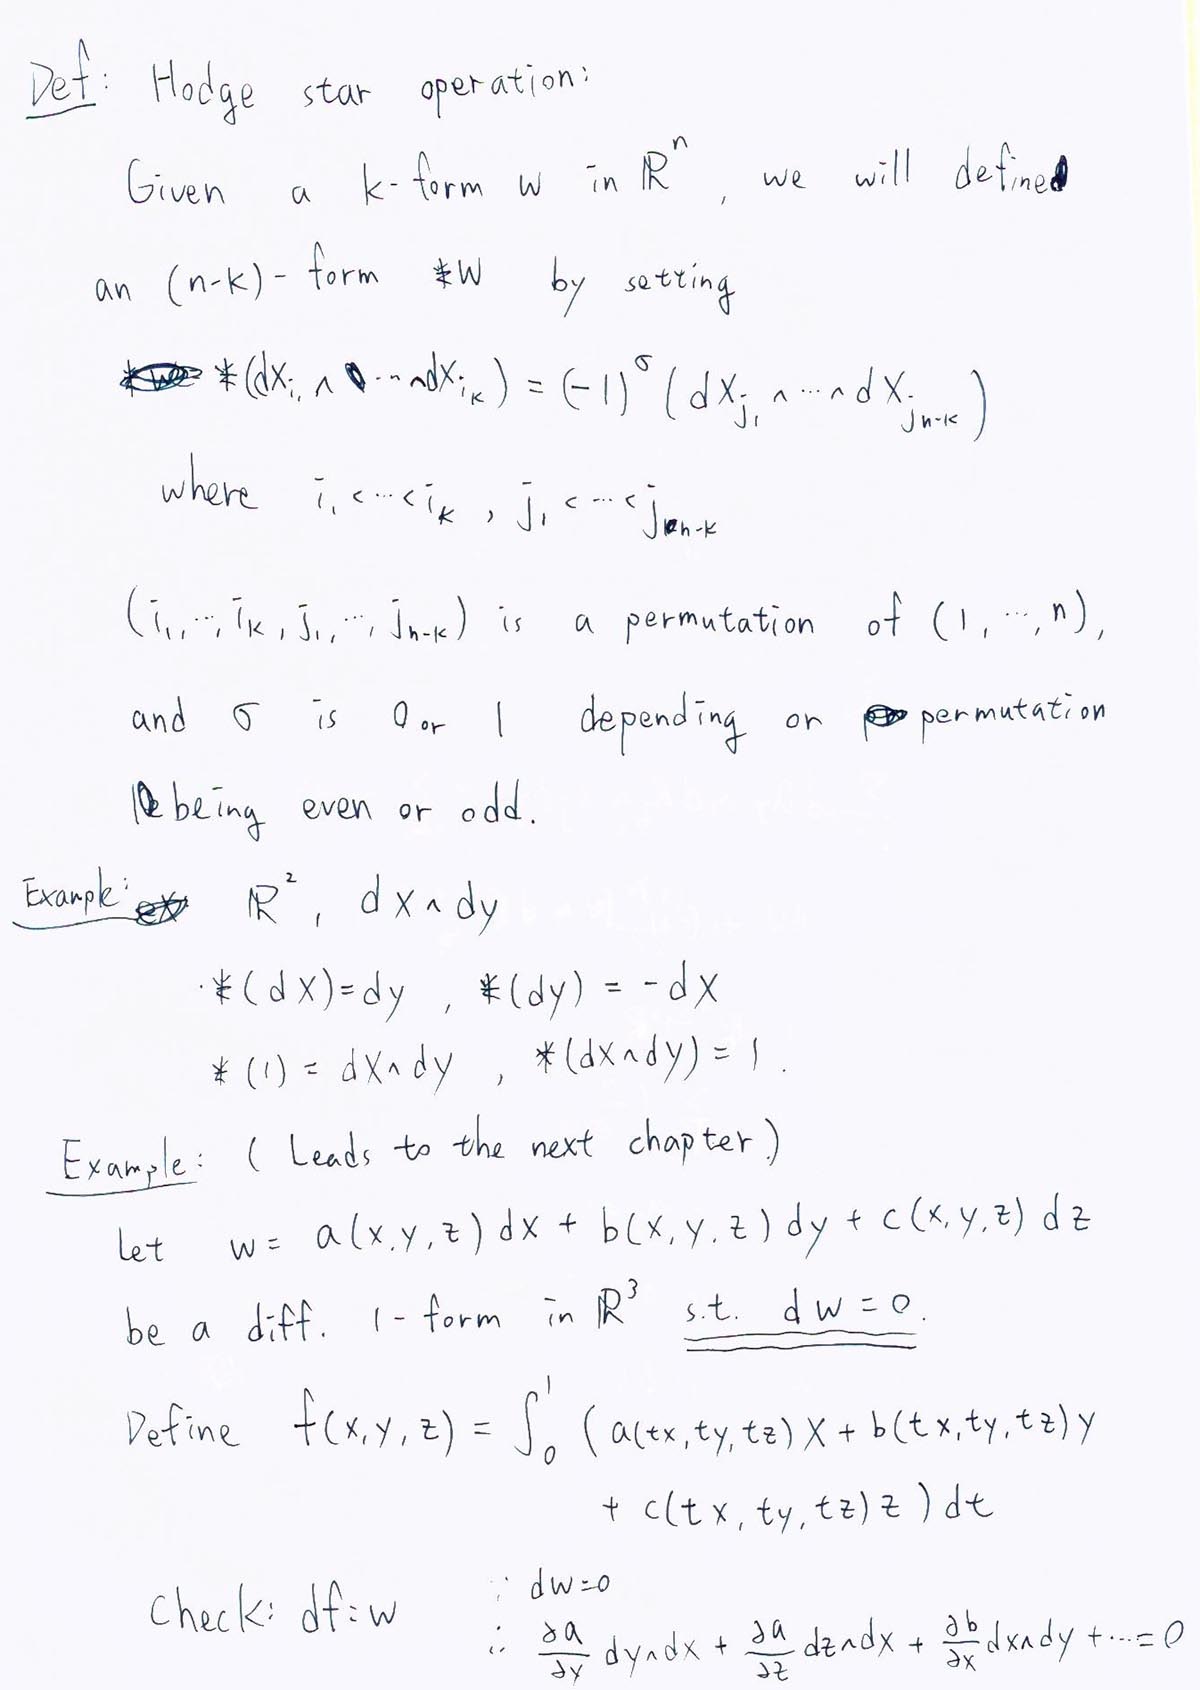 Def: Hodge star operation:
Given a k-form w in ℝⁿ, we will define
an (n-k)-form *w by setting
*(dx_{i_1} ∧ ... ∧dx_{i_k}) = (-1)^σ (dx_{j_1} ∧ ... ∧ dx_{j_{n-k}})
where i_1 < ... < i_k, j_1 < ... < j_{n-k}
(i_1, ..., i_k, j_1, ..., j_{n-k}) is a permutation of (1, ..., n),
and σ is 0 or 1 depending on permutation
being even or odd.
Example: ℝ², dx∧dy
*(dx)=dy, *(dy) = -dx
*(1) = dx∧dy, *(dx∧dy) = 1.
Example: (Leads to the next chapter)
Let w = a(x,y,z)dx + b(x,y,z)dy + c(x,y,z)dz
be a diff. 1-form in ℝ³ s.t. dw=0.
Define f(x,y,z) = ∫₀¹ (a(tx,ty,tz)x + b(tx,ty,tz)y
+ c(tx,ty,tz)z)dt
Check: df=w ∵ dw=0
∴ ∂a/∂y dy∧dx + ∂a/∂z dz∧dx + ∂b/∂x dx∧dy + ... = 0